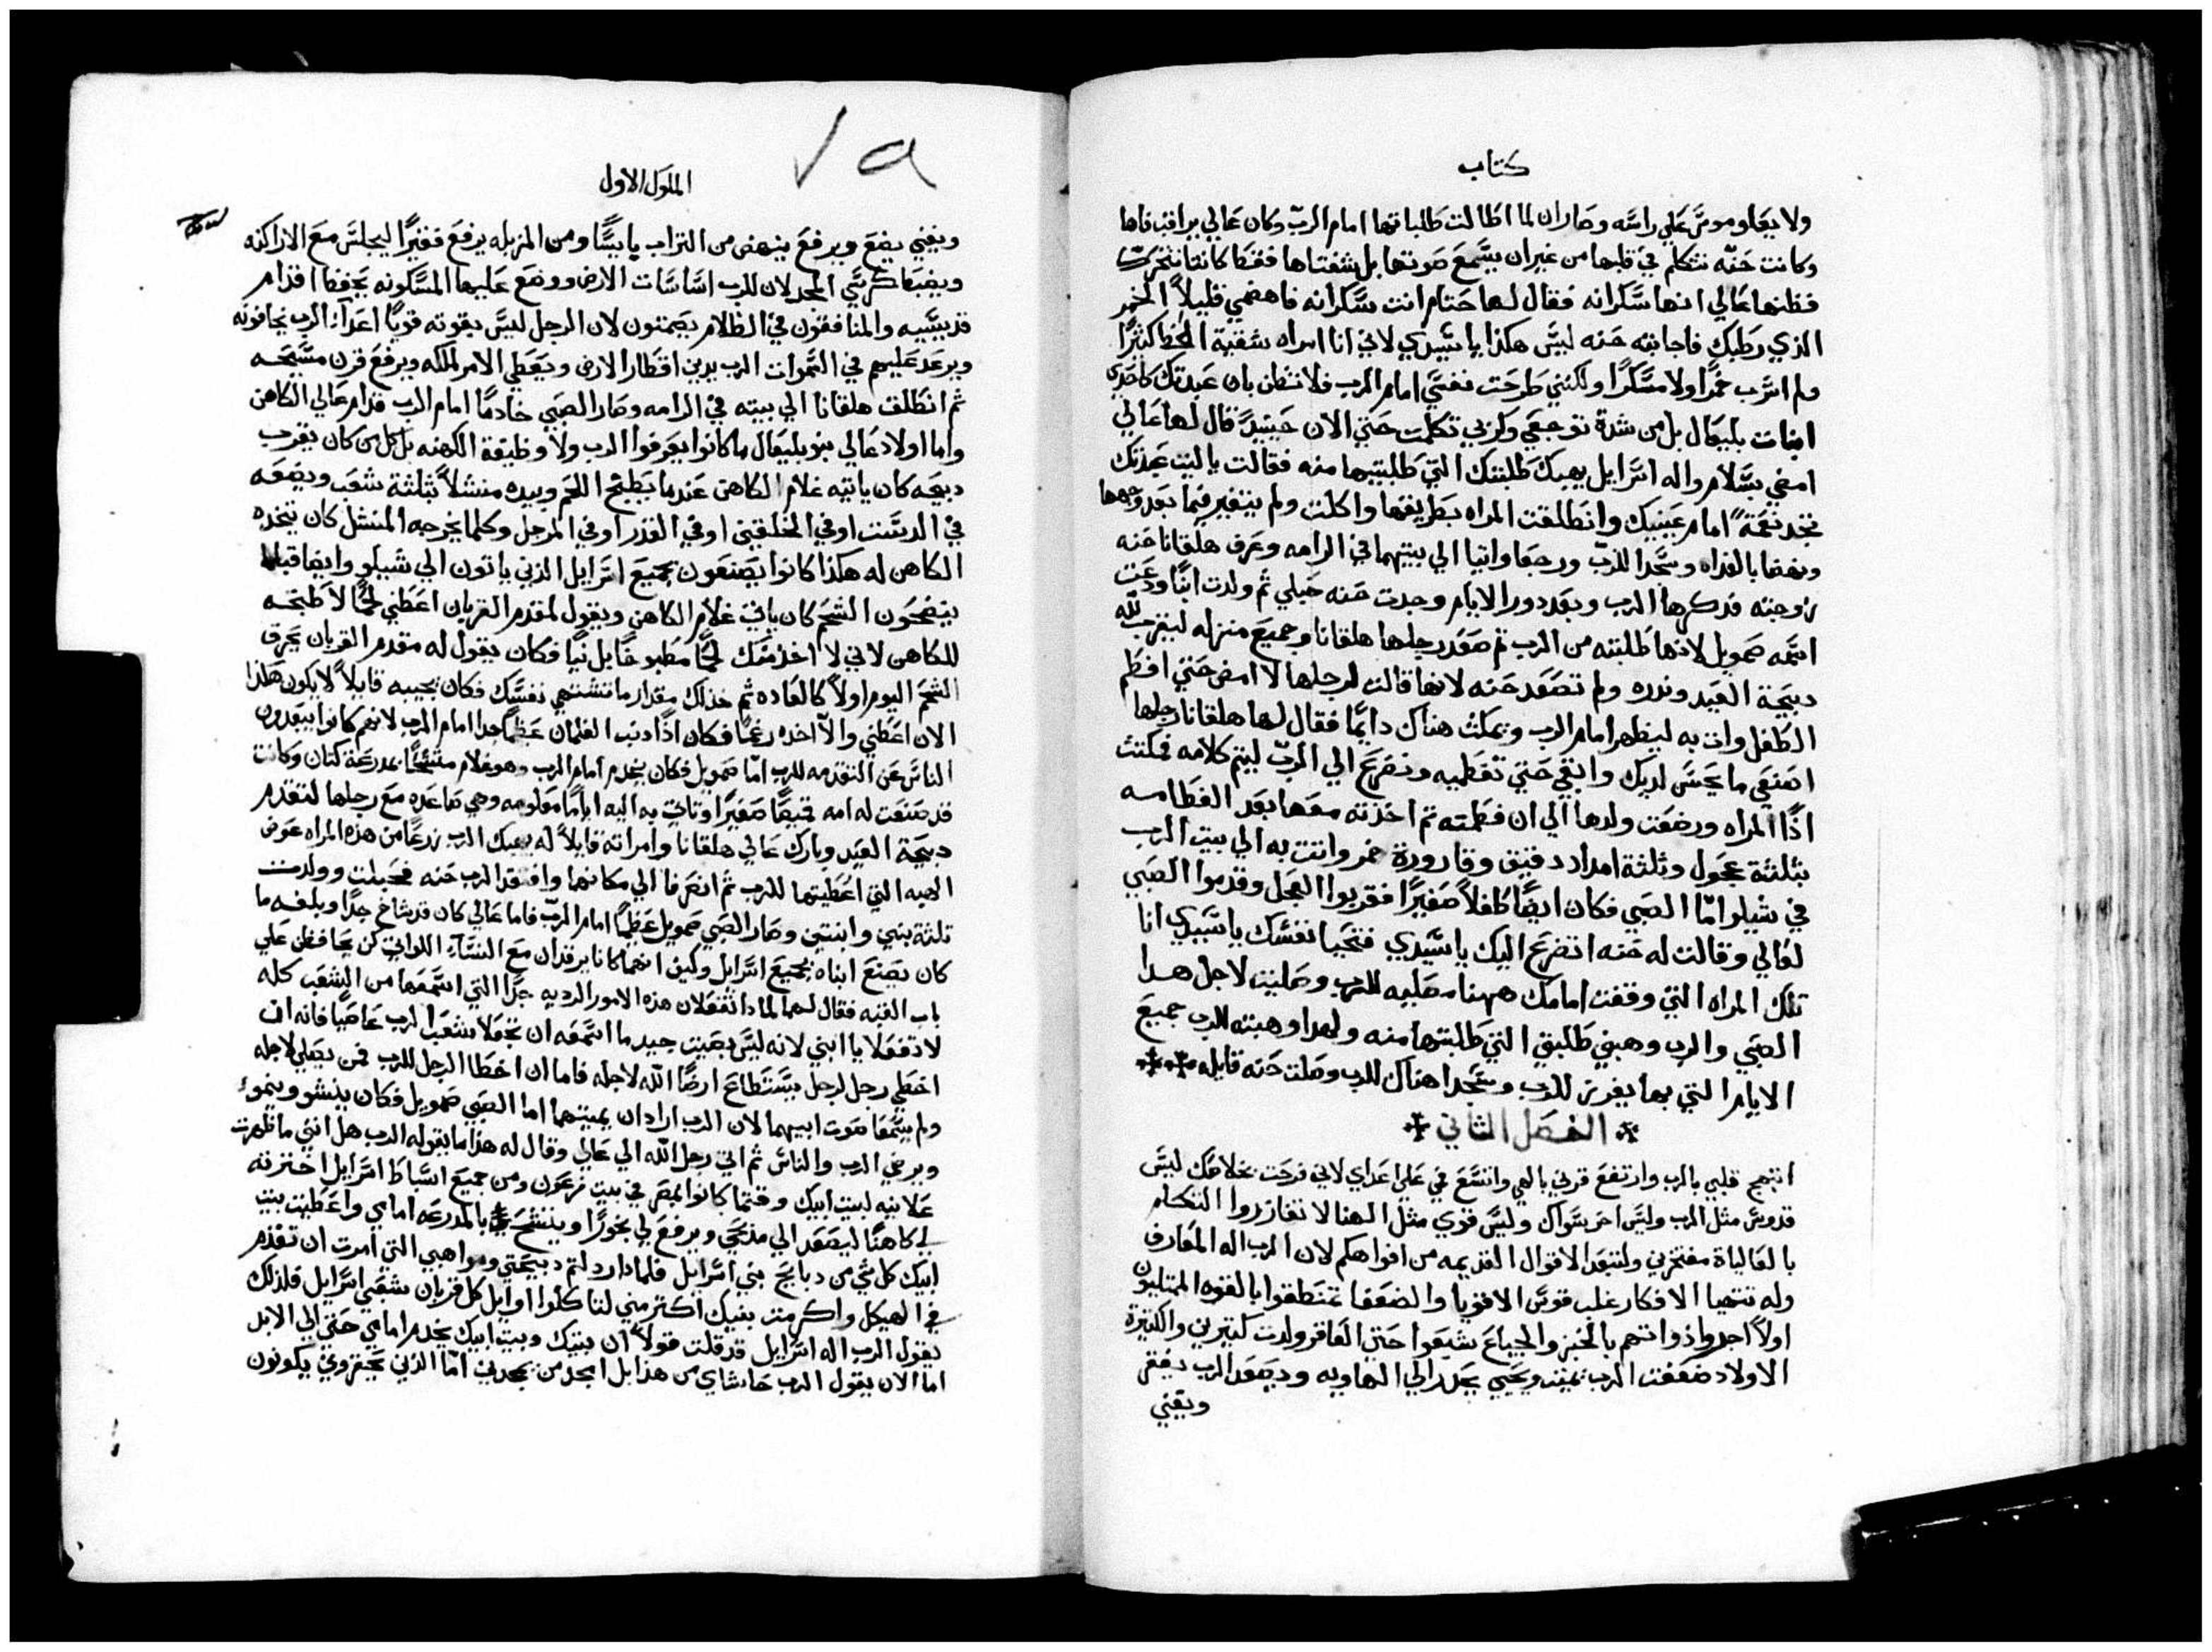 كتاب
ولا يعلو موس علي راسه وصار ان لما اطالت طلباتها امام الرب وكان عالي يراقب فاها
وكانت حنه تتكلم في قلبها من غير ان يسمع صوتها بل شفتاها فقط كانتا تتحرك
فظنها عالي انها سكرانه فقال لها حتام انت سكرانه فاهضمي قليلاً الخمر
الذي رطبك فاجابته حنه ليس هكذا يا سيدي لاني انا امراه شقية الحظ كثيرًا
ولم اشرب خمرًا ولا مسكرًا ولكنني طرحت نفسي امام الرب فلا تظن بان عبدتك كاحدي
ابنات بليعال بل من شدة توجعي وكربي تكلمت حتي الان حينيدٍ قال لها عالي
امضي بسلام واله اسرايل يهبك طلبتك التي طلبتيها منه فقالت يا ليت عبدتك
تجد نعمةً امام عينيك وانطلقت المراه بطريقها واكلت ولم يتغير فيما بعد وجهها
ونهضا بالغداه وسجدا للرب ورجعا واتيا الي بيتهما في الرامه وعرف هلقانا حنه
زوجته فدكرها الرب وبعد دور الايام وجدت حنه حبلي ثم ولدت ابنًا ودعت
اسمه صمويل لانها طلبته من الرب ثم صعد رجلها هلقانا وجميع منزله ليقرب لله
دبيحة العيد وندره ولم تصعد حنه لانها قالت لرجلها لا امض حتي افطم
الطفل وات به ليظهر امام الرب ويمكث هناك دايمًا فقال لها هلقانا رجلها
اصنعي ما يحسن لديك وابقي حتي تفطميه ونضرع الي الرب ليتم كلامه فمكثت
اذًا المراه ورضعت ولدها الي ان فطمته ثم اخذته معها بعد الفطامه
بثلثة عجول وثلثة امداد دقيق وقارورة خمر واتت به الي بيت الرب
في شيلو امّا الصبي فكان ايضًا طفلاً صغيرًا فقربوا العجل وقدموا الصبي
لعالي وقالت له حنه اتضرع اليك يا سيدي فتحيا نفسك يا سيدي انا
تلك المراه التي وقفت امامك ههنا مصليه للرب وصليت لاجل هدا
الصبي والرب وهبني طلبتي التي طالبتها منه ولهدا وهبته للرب جميع
الايام التي بها يفرز للرب وسجدا هناك للرب وصلت حنه قايله
الفصل الثاني
ابتهج قلبي بالرب وارتفع قرني بالهي واتسع في علي اعداي لاني فرحت بخلاصك ليس
قدوس مثل الرب وليس احر سواك وليس قوي مثل الهنا لا تغازروا التكلم
بالعالياة مفتخرين ولتبعد الاقوال القديمه من افواهكم لان الرب اله المعارف
وله تتهيا الافكار غلب قوس الاقويا والضعفا تمنطقوا بالقوه الممتليون
اولاً اجروا ذواتهم بالخبز والجياع شبعوا حتي العاقر ولدت كثيرين والكثيرة
الاولاد ضعفت الرب يميت ويحيي يحدر الي الهاويه ويصعد الرب يفقر
ويغني
الملوك الاول
ويغني يضع ويرفع ينهض من التراب يايسًا ومن المزبله يرفع فقيرًا ليجلس مع الاراكنه
ويضبط كرسي المجد لان للرب اساسات الارض ووضع عليها المسكونه يحفظ اقدام
قديسيه والمنافقون في الظلام يصمتون لان الرجل ليس بقوته قويًا اعداء الرب يخافونه
ويرعد عليهم في السموات الرب يدين اقطار الارض ويعطي الامر لملكه ويرفع قرن مسيحه
ثم انطلق هلقانا الي بيته في الرامه وصار الصبي خادمًا امام الرب قدام عالي الكاهن
واما اولاد عالي بنو بليعال ما كانوا يعرفوا الرب ولا وظيفة الكهنه بل كل من كان يقرب
دبيحه كان ياتيه غلام الكاهن عندما يطبخ اللحم وبيده منشلاً بثلثة شعب ويضعه
في الدست او في الخلقين او في القدر او في المرجل وكلما يخرجه المنشل كان يتخده
الكاهن له هكذا كانوا يصنعون بجميع اسرايل الذين ياتون الي شيلو وايضا قبلما
ينضجون الشحم كان ياتي غلام الكاهن ويقول لمقدم القربان اعطني لحمًا لاطبخه
للكاهن لاني لا اخذ منك لحمًا مطبوخًا بل نيًا فكان يقول له مقدم القربان يحرق
الشحم اليوم اولاً كالعاده ثم خذ لك مقدار ما تشتهي نفسك فكان يجيبه قايلاً لا يكون هكذا
الان اعطني والا اخده رغمًا فكان اذًا دنب الغلمان عظيمًا جدا امام الرب لانهم كانوا يبعدون
الناس عن التقدمه للرب امّا صمويل فكان يخدم امام الرب وهو غلام متشحًا بمدرعة كتان وكانت
قد صنعت له امه قميصًا صغيرًا وتات به اليه ايامًا معلومه وهي صاعده مع رجلها لتقدم
دبيحة العيد وبارك عالي هلقانا وامراته قايلاً له يهبك الرب زرعًا من هذه المراه عوض
الهبه التي اعطيتها للرب ثم انصرفا الي مكانهما وافتقد الرب حنه فحبلت وولدت
ثلثة بنين وابنتين وصار الصبي صمويل عظيمًا امام الرب فاما عالي كان قد شاخ جدًا وبلغه ما
كان يصنع ابناه بجميع اسرايل وكيف انهما كانا يرقدان مع النساء اللواتي كن يحافظن علي
باب القبه فقال لهما لماذا تفعلان هذه الامور الرديه جدًا التي اسمعها من الشعب كله
لا تفعلا يا ابني لانه ليس بصيت جيد ما اسمعه ان تجعلا شعب الرب عاصيًا فانه ان
اخطي رجل لرجل يستطاع ارضا الله لاجله فاما ان اخطا الرجل للرب فمن يصلي لاجله
ولم يسمعا صوت ابيهما لان الرب اراد ان يميتهما اما الصبي صمويل فكان ينشو وينمو
ويرضي الرب والناس ثم اتي رجل الله الي عالي وقال له هذا ما يقوله الرب هل انني ما ظهرت
علانيه لبيت ابيك وقتما كانوا بمصر في بيت فرعون ومن جميع اسباط اسرايل اخترته
لي كاهنًا ليصعد الي مذبحي ويرفع لي بخورًا ويتشح بالمدرعه امامي واعطيت بيت
ابيك كل شي من دبايح بني اسرايل فلمادا رددتم دبيحتي ومواهبي التي امرت ان تقدم
في الهيكل واكرمت بنيك اكتر مني لتاكلوا اوايل كل قربان شعبي اسرايل فلذلك
يقول الرب اله اسرايل قد قلت قولاً ان بيتك وبيت ابيك يخدم امامي حتي الي الابد
اما الان يقول الرب حاشاي من هذا بل امجد من يمجدني امّا الذين يحتقروني يكونون